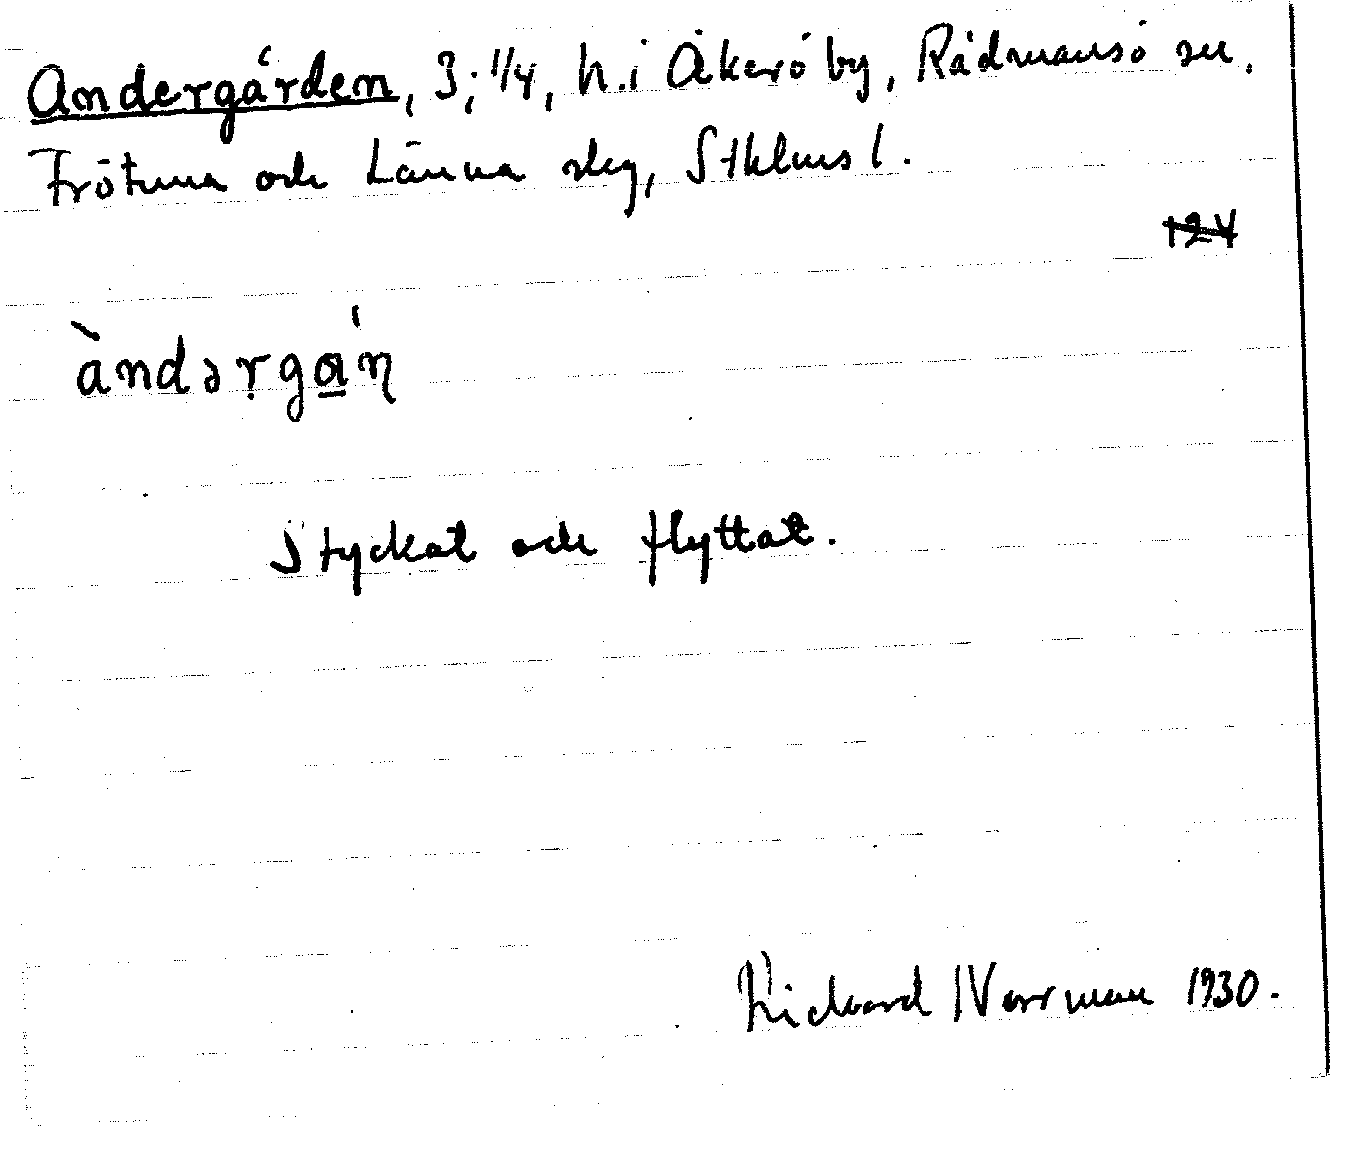 Andergården, 3; 1/4, h. i Åkerö by, Rådmansö sn,
Frötuna och Länna slg, Sthlms l.
124
àndərga̱ɳ
Styckat och flyttat.
Rickard Norrman 1930.